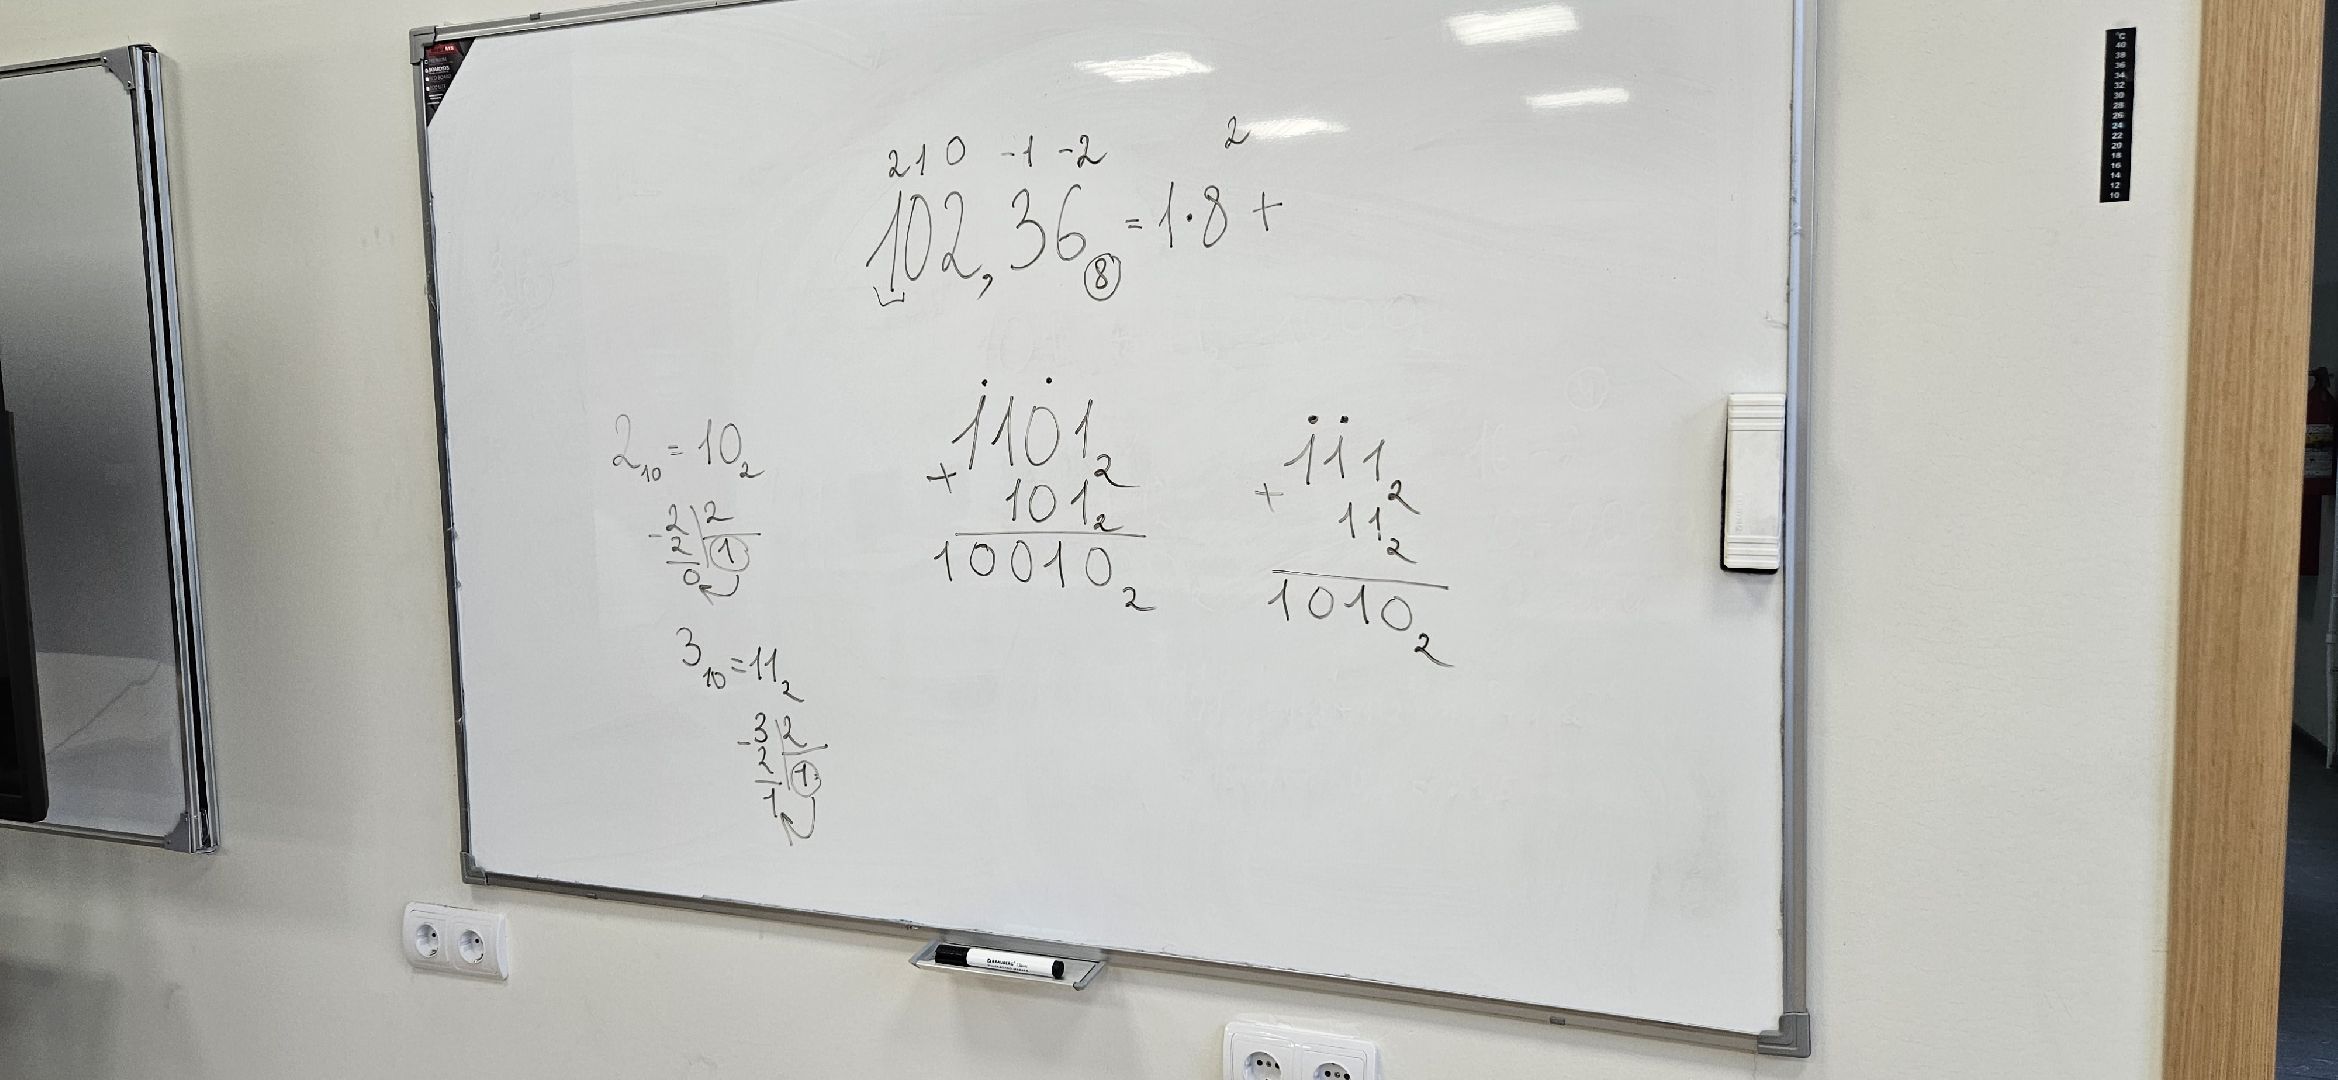 2 1 0 -1 -2 2
102,36 8 = 1·8 +
2 10 = 10 2
-2 2
2 1
0
3 10 = 11 2
-3 2
2 1
1
1101 2
+
101 2
10010 2
111 2
+
11 2
1010 2
°C
40
38
36
34
32
30
28
26
24
22
20
18
16
14
12
10
BRAUBERG